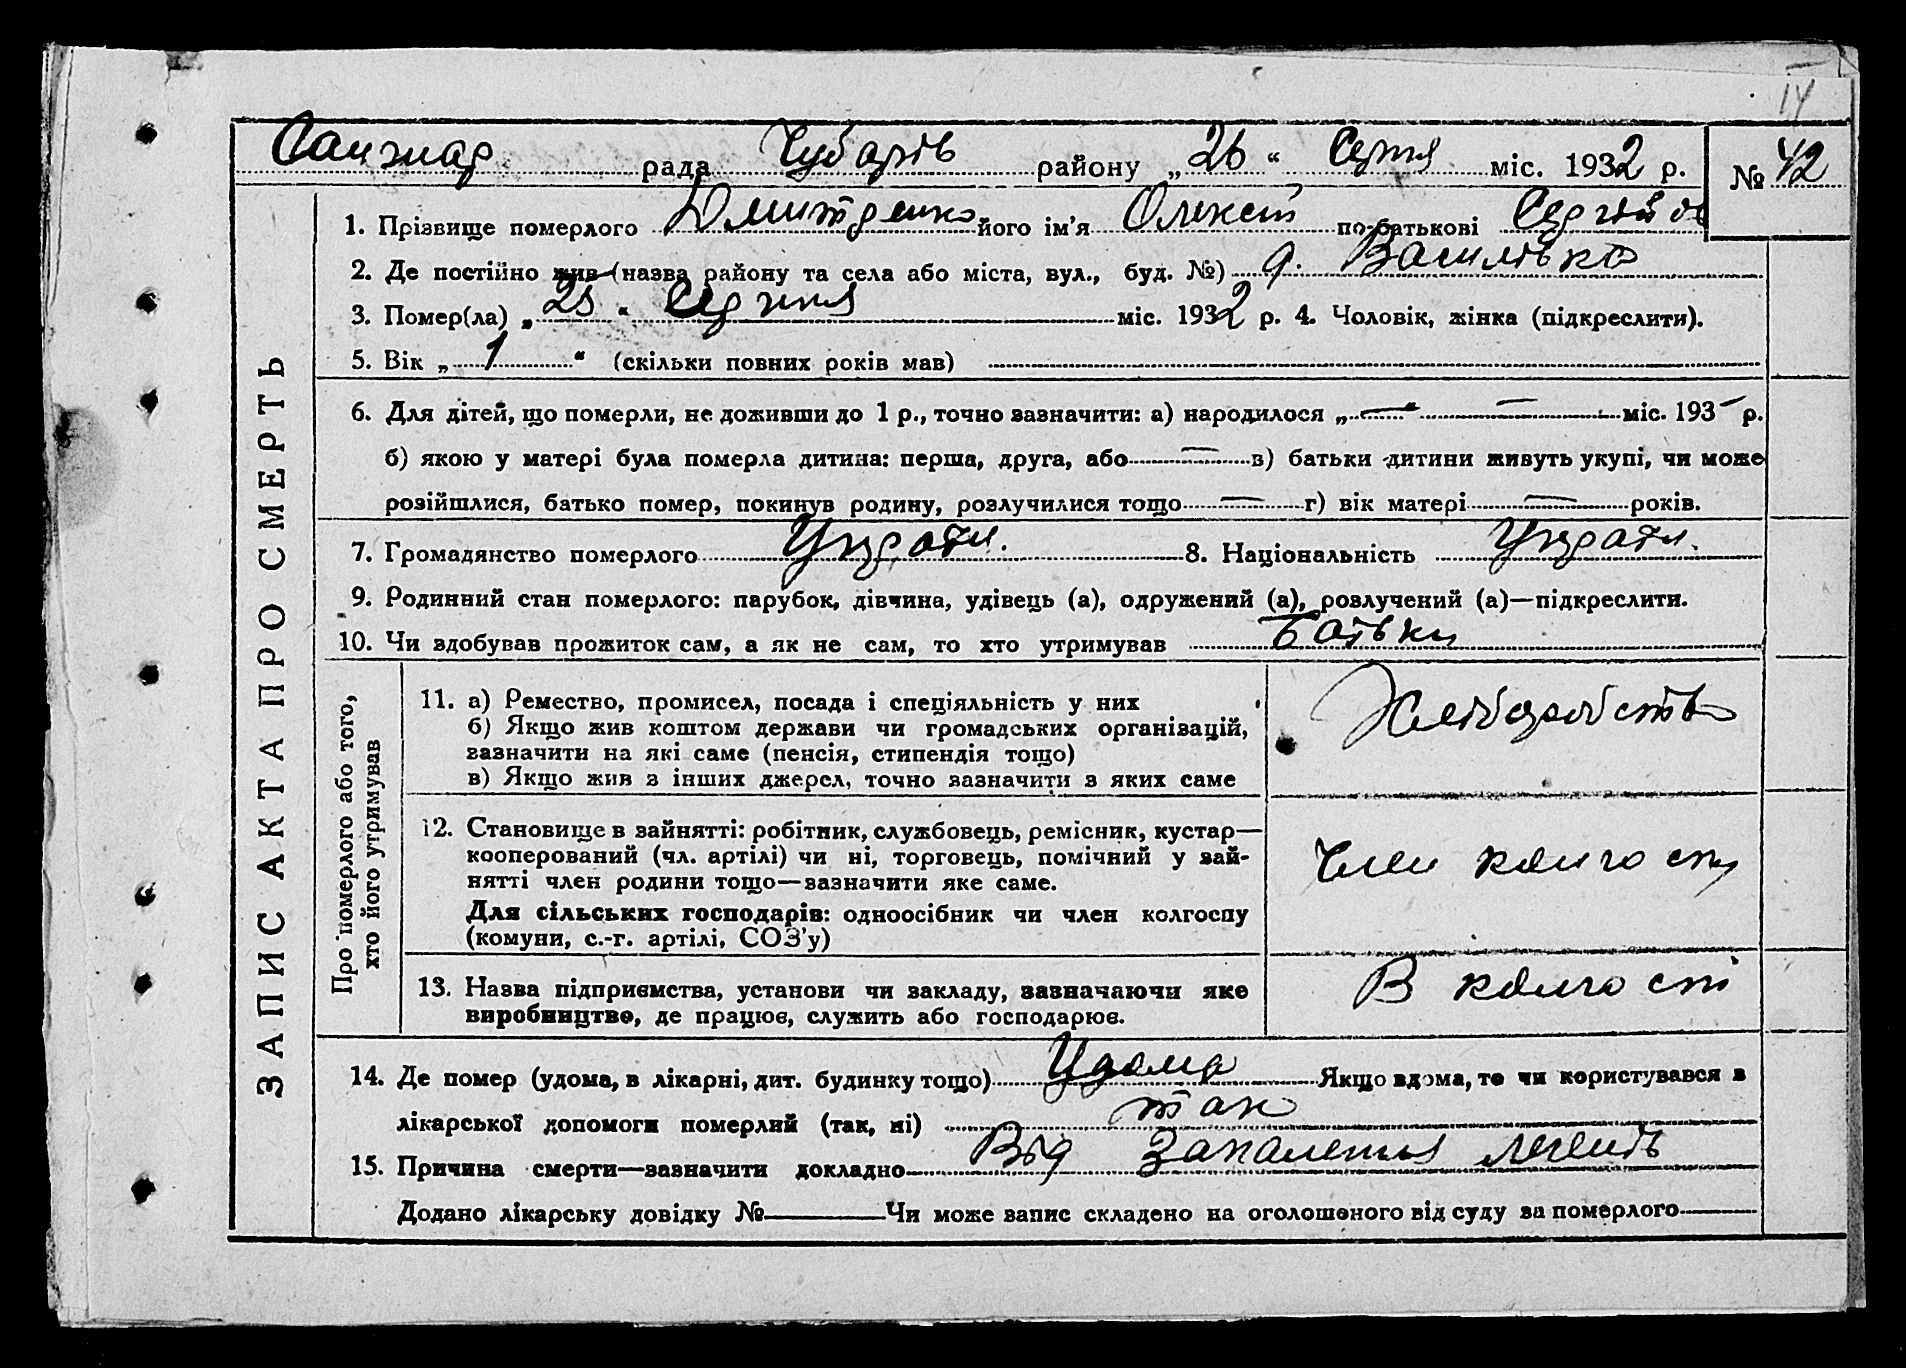 IV
Санжар рада Чубарів району „26“ Серпня міс. 1932 р. № 42
1. Прізвище померлого Дмитренко його ім’я Олексій по-батькові Сергійов
2. Де постійно жив (назва району та села або міста, вул., буд. №)
3. Помер(ла) „25“ Серпня міс. 1932 р. 4. Чоловік, жінка (підкреслити).
5. Вік „1“ (скільки повних років мав)
6. Для дітей, що померли, не доживши до 1 р., точно зазначити: а) народилося „—“ — міс. 193– р.
б) якою у матері була померла дитина: перша, друга, або — в) батьки дитини живуть укупі, чи може
розійшлися, батько помер, покинув родину, розлучилися тощо — г) вік матері — років.
7. Громадянство померлого Украти. 8. Національність Украти.
9. Родинний стан померлого: парубок, дівчина, удівець (а), одружений (а), розлучений (а)—підкреслити.
10. Чи здобував прожиток сам, а як не сам, то хто утримував Батьки
ЗАПИС АКТА ПРО СМЕРТЬ
Про померлого або того,
хто його утримував
11. а) Ремество, промисел, посада і спеціяльність у них
б) Якщо жив коштом держави чи громадських організацій,
зазначити на які саме (пенсія, стипендія тощо)
в) Якщо жив з інших джерел, точно зазначити з яких саме
Хліборобство
12. Становище в зайнятті: робітник, службовець, ремісник, кустар—
кооперований (чл. артілі) чи ні, торговець, помічний у зай-
нятті член родини тощо—зазначити яке саме.
Для сільських господарів: одноосібник чи член колгоспу
(комуни, с.-г. артілі, СОЗ’у)
Член колгоспу
13. Назва підприємства, установи чи закладу, зазначаючи яке
виробництво, де працює, служить або господарює.
В колгоспі
14. Де помер (удома, в лікарні, дит. будинку тощо) Удома Якщо вдома, то чи користувався з
лікарської допомоги померлий (так, ні) так
15. Причина смерти—зазначити докладно Від Запалення легенів
Додано лікарську довідку № — Чи може запис складено на оголошеного від суду за померлого —